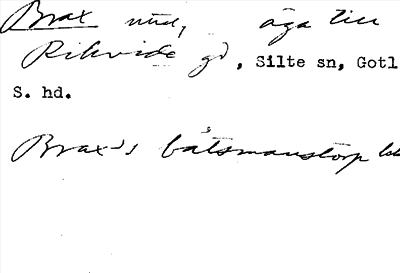 Brax äga till
Rikvide gd, Silte sn, Gotl
S. hd.
Brax's båtsmanstorp